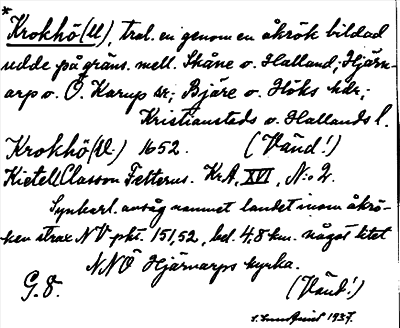 * Krokhö(U), trol. en genom en åkrök bildad
udde på gräns. mell. Skåne o. Halland, Hjärn-
arp o. Ö. Karup sr; Bjäre o. Höks hdr;
Kristianstads o. Hallands l.
Krokhö(U.) 1652. (Vänd!)
Kietell Classon Felterus. KrA, XVI, N:o 2.
Synkerl. avsåg namnet landet inom åkrö-
ken strax NV pkt. 151,52, bel. 4,8 km. något litet
NNÖ Hjärnarps kyrka.
G. 8. (Vänd!)
1937.